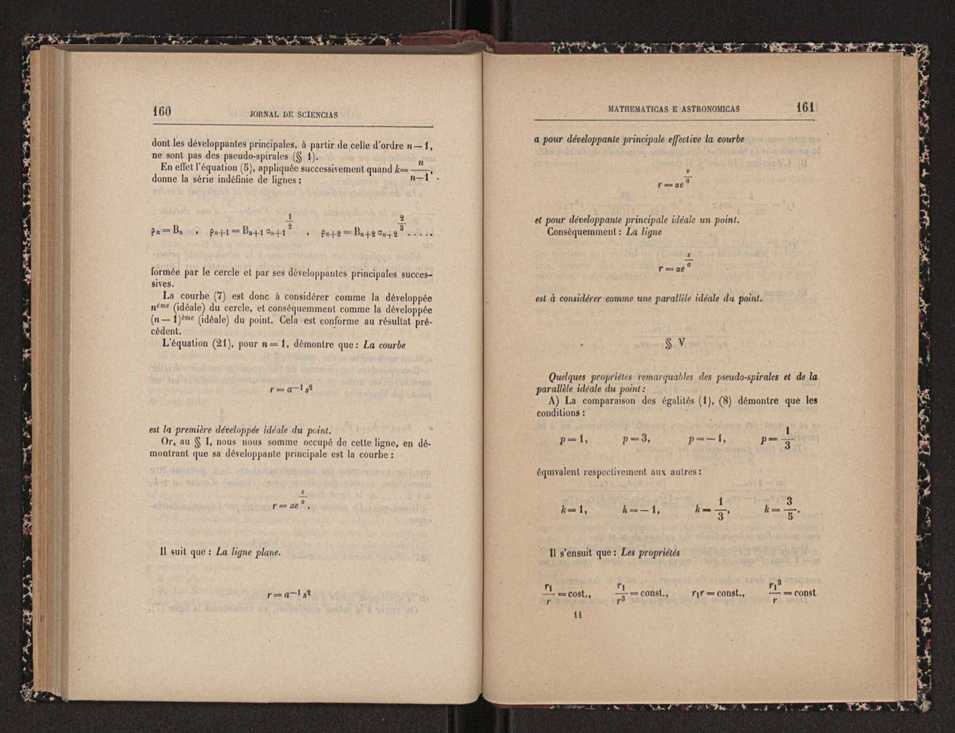 160 JORNAL DE SCIENCIAS
dont les développantes principales, à partir de celle d'ordre n — 1,
ne sont pas des pseudo-spirales (§ 1).
En effet l'équation (5), appliquée successivement quand k = n/(n—1),
donne la série indéfinie de lignes :
ρₙ = Bₙ , ρₙ₊₁ = Bₙ₊₁ σₙ₊₁^(1/2) , ρₙ₊₂ = Bₙ₊₂ σₙ₊₂^(2/3) . . . . .
formée par le cercle et par ses développantes principales succes-
sives.
La courbe (7) est donc à considérer comme la développée
nème (idéale) du cercle, et conséquemment comme la développée
(n — 1)ème (idéale) du point. Cela est conforme au résultat pré-
cédent.
L'équation (21), pour n = 1, démontre que : La courbe
r = a—1 s2
est la première développée idéale du point.
Or, au § I, nous nous somme occupé de cette ligne, en dé-
montrant que sa développante principale est la courbe :
r = ae^(s/a).
Il suit que : La ligne plane.
r = a—1 s2
MATHEMATICAS E ASTRONOMICAS 161
a pour développante principale effective la courbe
r = ae^(s/a)
et pour développante principale idéale un point.
Conséquemment : La ligne
r = ae^(s/a)
est à considérer comme une parallèle idéale du point.
§ V
Quelques propriétés remarquables des pseudo-spirales et de la
parallèle idéale du point :
A) La comparaison des égalités (1), (8) démontre que les
conditions :
p = 1, p = 3, p = — 1, p = 1/3
équivalent respectivement aux autres :
k = 1, k = — 1, k = 1/3, k = 3/5.
Il s'ensuit que : Les propriétés
r₁/r = cost., r₁/r³ = const., r₁r = const., r₁³/r = const
11